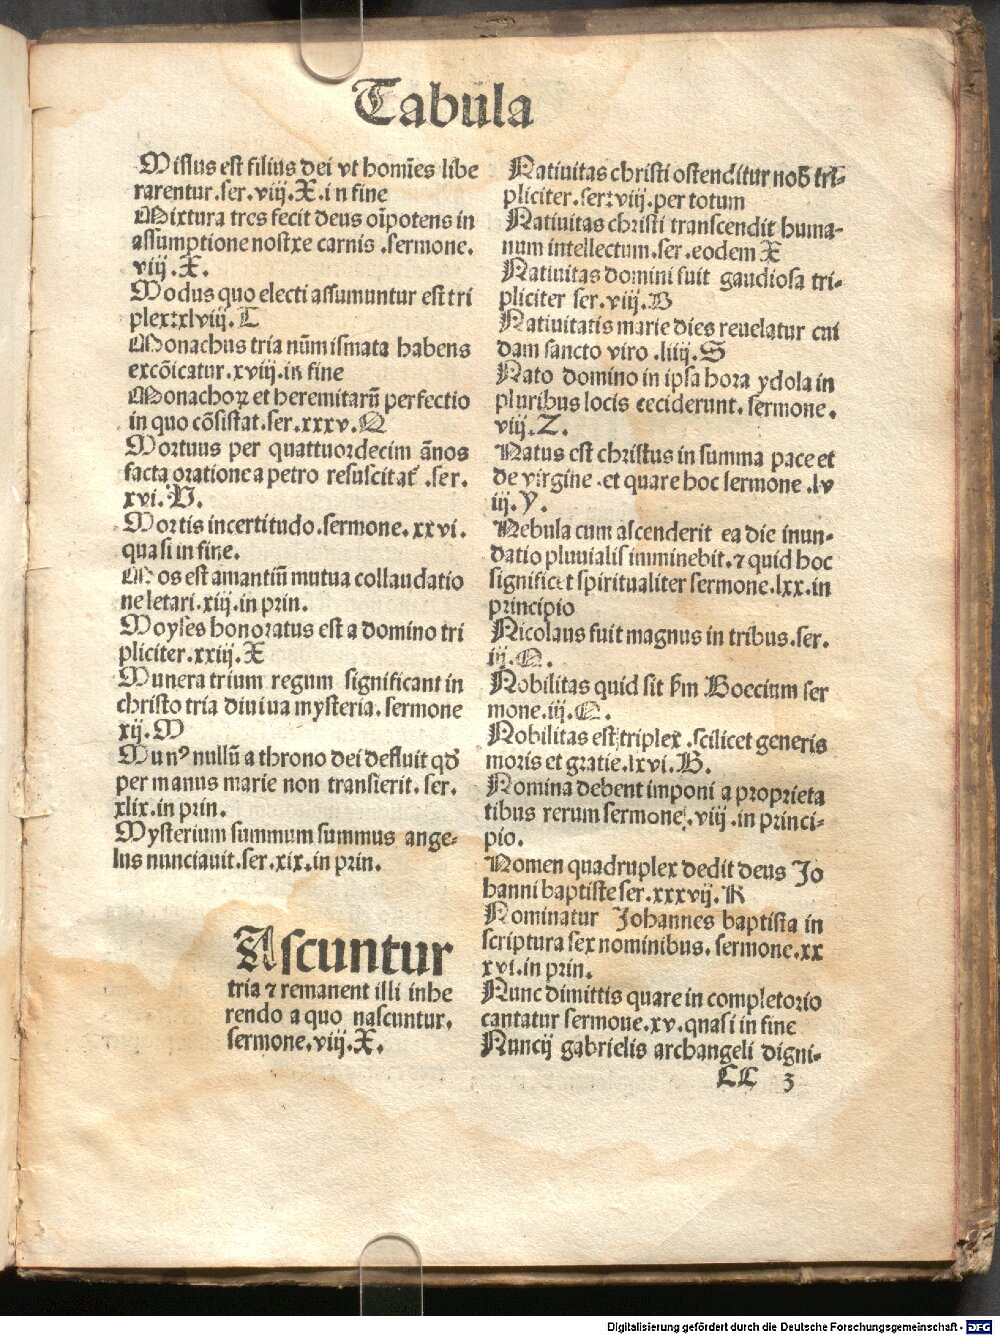 Tabula
Missus est filius dei vt homīes libe
rarentur.ser.viij.X.in fine
Mixtura tres fecit deus oīpotens in
assumptione nostre carnis.sermone.
viij.X.
Modus quo electi assumuntur est tri
plex:xlviij.C
Monachus tria nūmismata habens
excōicatur.xviij.in fine
Monachoꝝ et heremitarū perfectio
in quo cōsistat.ser.xxxv.Q
Mortuus per quattuordecim ānos
facta oratione a petro resuscitat᷑.ser.
xvi.V.
Mortis incertitudo.sermone.xxvi.
quasi in fine.
Mos est amantiū mutua collaudatio
ne letari.xiij.in prin.
Moyses honoratus est a domino tri
pliciter.xxiij.X
Munera trium regum significant in
christo tria diuiua mysteria.sermone
xij.M
Munꝰ nullū a throno dei defluit qd̄
per manus marie non transierit.ser.
xlix.in prin.
Mysterium summum summus ange-
lus nunciauit.ser.xix.in prin.
Ascuntur
tria ⁊ remanent illi inhe
rendo a quo nascuntur.
sermone.viij.X.
Natiuitas christi ostenditur nob̄ tri-
pliciter.ser:viij.per totum
Natiuitas christi transcendit huma-
num intellectum.ser.eodem X
Natiuitas domini fuit gaudiosa tri-
pliciter ser.viij.B
Natiuitatis marie dies reuelatur cui
dam sancto viro.liij.S
Nato domino in ipsa hora ydola in
pluribus locis ceciderunt.sermone.
viij.Z.
Natus est christus in summa pace et
de virgine.et quare hoc sermone.lv
iij.Y.
Nebula cum ascenderit ea die inun-
datio pluuialis imminebit.⁊ quid hoc
significet spiritualiter sermone.lxx.in
principio
Nicolaus fuit magnus in tribus.ser.
iij.Q.
Nobilitas quid sit ẜm Boecium ser
mone.iij.Q.
Nobilitas est triplex.scilicet generis
moris et gratie.lxvi.B.
Nomina debent imponi a proprieta
tibus rerum sermone.viij.in princi-
pio.
Nomen quadruplex dedit deus Jo
hanni baptiste ser.xxxvij.K
Nominatur Johannes baptista in
scriptura sex nominibus.sermone.xx
xvi.in prin.
Nunc dimittis quare in completorio
cantatur sermoue.xv.quasi in fine
Nuncij gabrielis archangeli digni-
CC 3
Digitalisierung gefördert durch die Deutsche Forschungsgemeinschaft - DFG